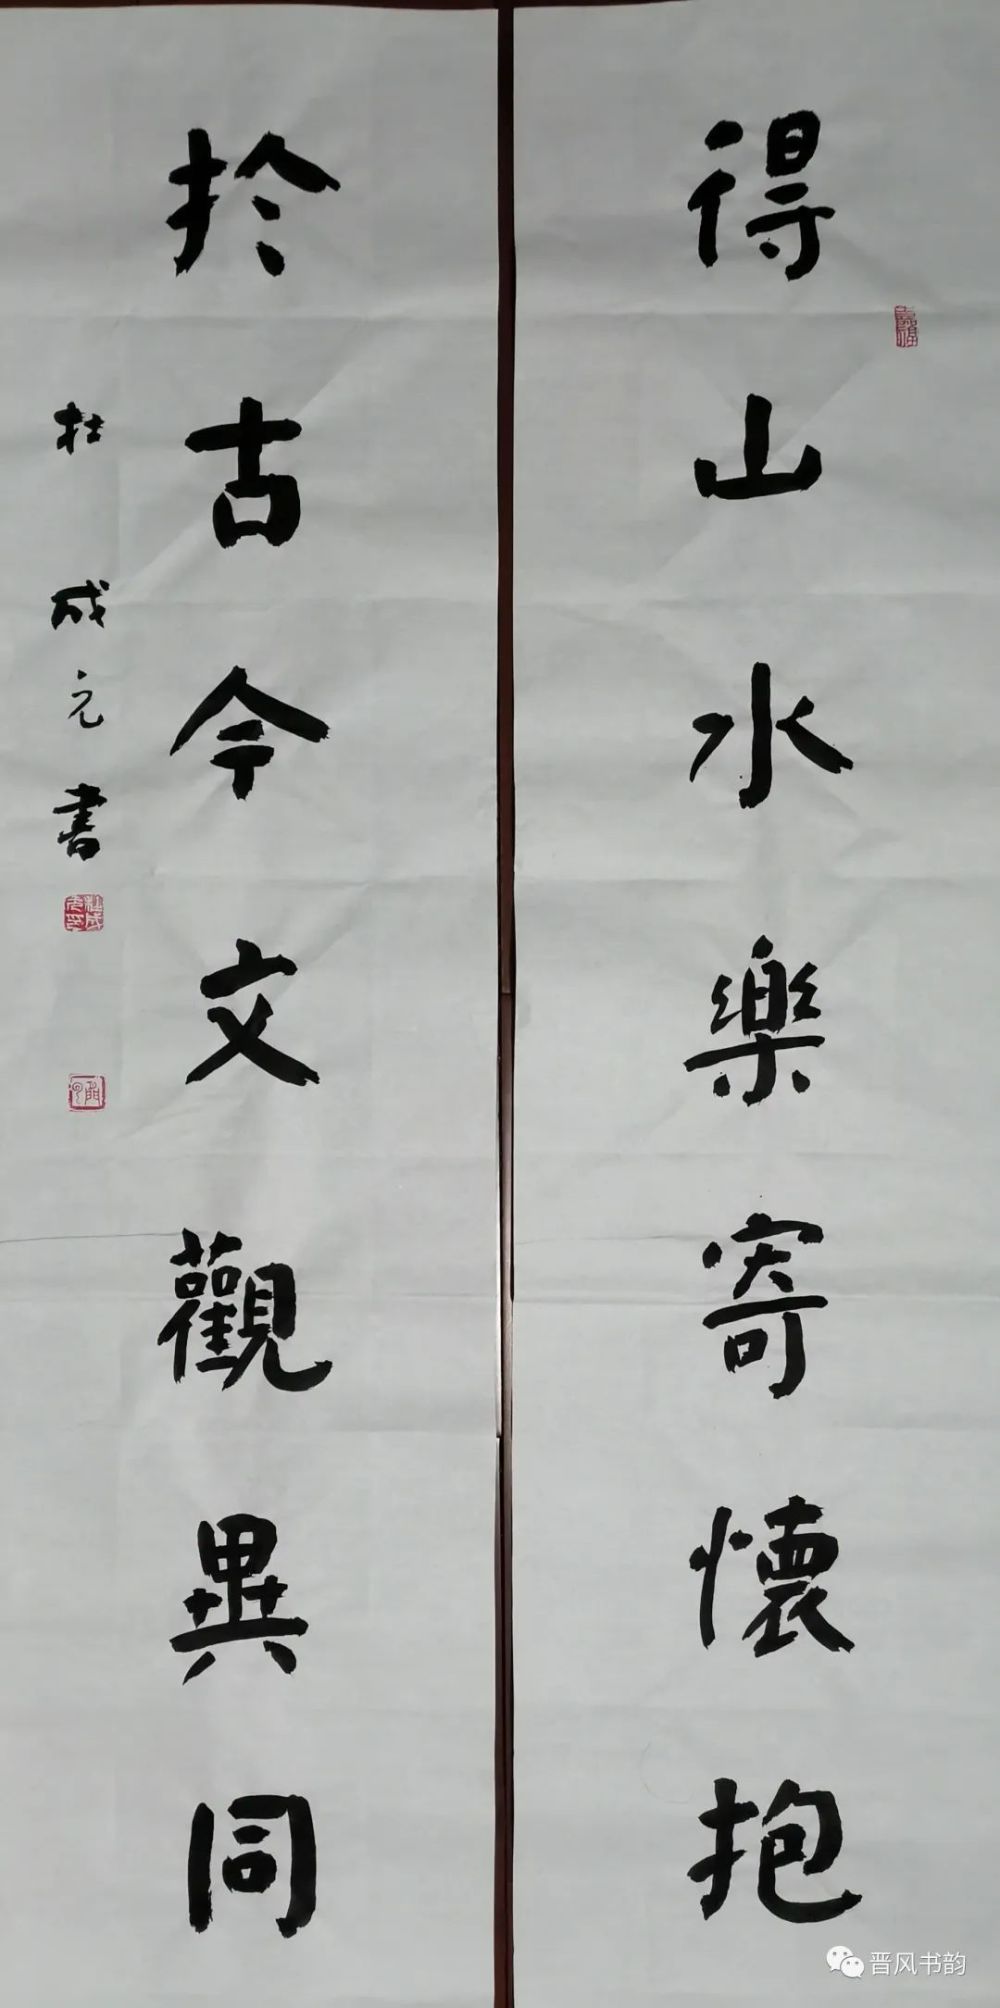 得山水樂寄懷抱
於古今文觀異同
杜成元書
晋风书韵